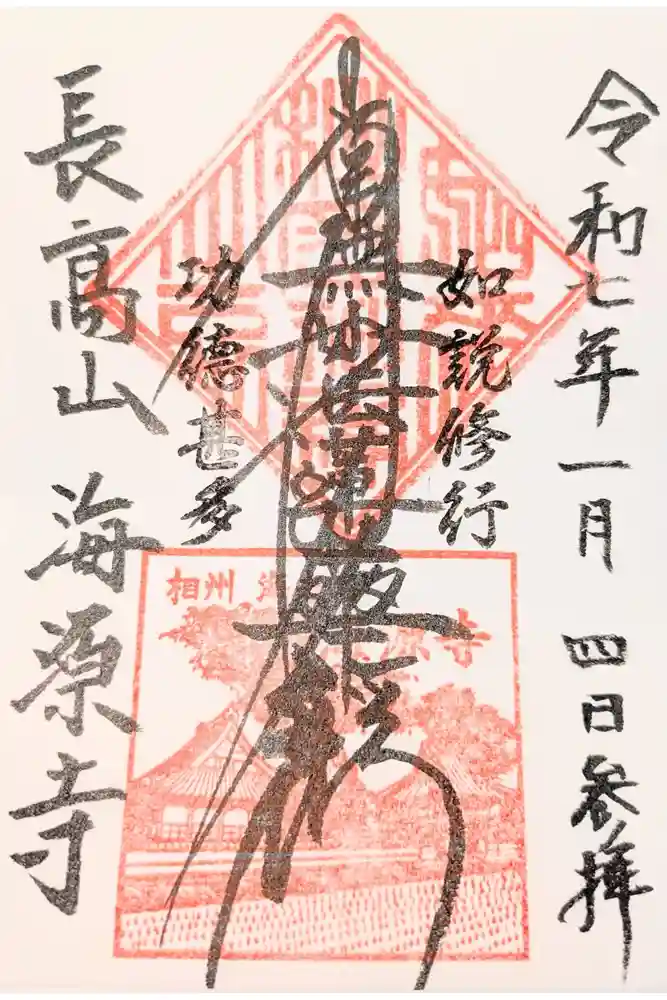 令和七年一月 四日参拝
如説修行
南無妙法蓮華経
功徳甚多
長高山 海源寺
相州
源寺